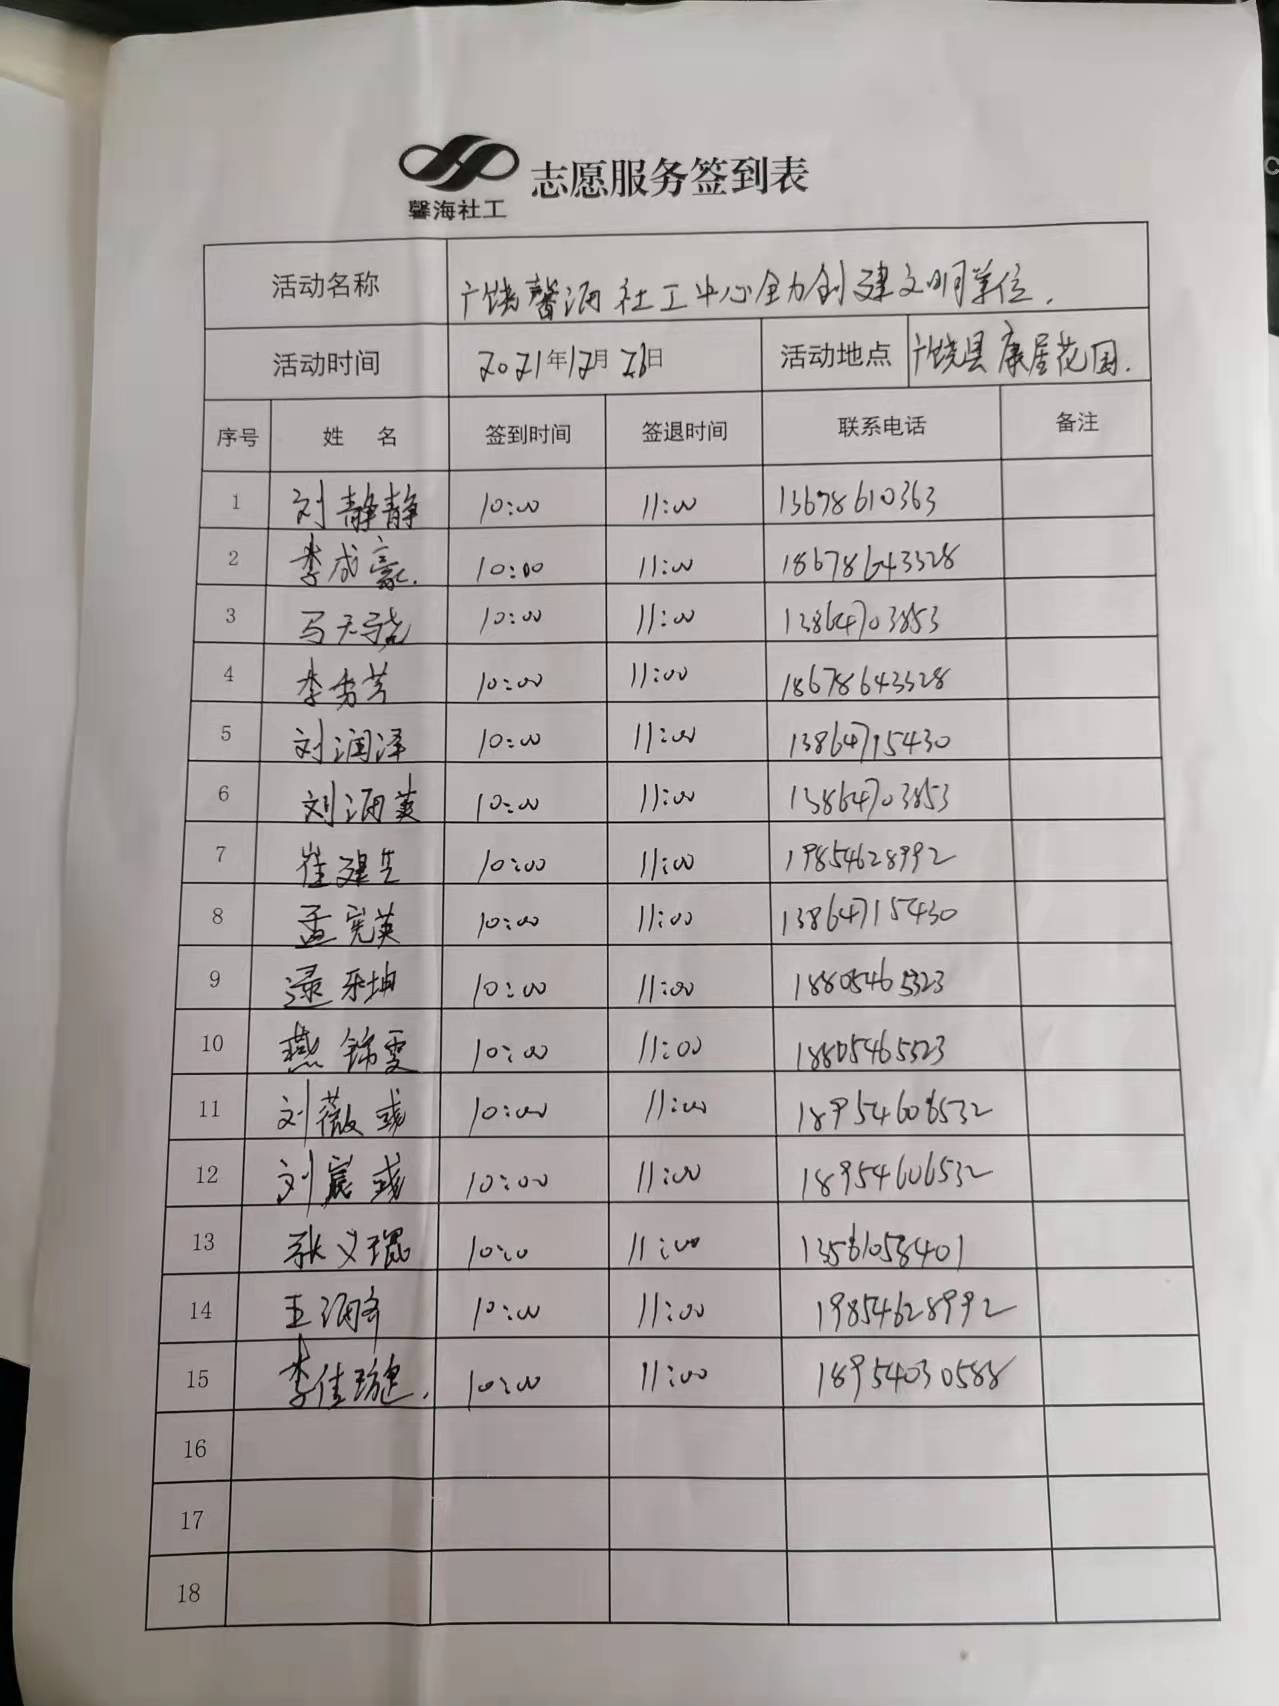 馨海社工 志愿服务签到表
活动名称 广饶馨海社工中心全力创建文明单位.
活动时间 2021年12月23日 活动地点 广饶县康居花园.
序号 姓 名 签到时间 签退时间 联系电话 备注
1 刘静静 10:00 11:00 13678610363
2 李成豪. 10:00 11:00 18678643328
3 马天骁 10:00 11:00 13864703853
4 李秀芳 10:00 11:00 18678643328
5 刘润泽 10:00 11:00 13864715430
6 刘海英 10:00 11:00 13864703853
7 崔建生 10:00 11:00 19854628992
8 孟宪英 10:00 11:00 13864715430
9 逯乐坤 10:00 11:00 18805465323
10 燕锦雯 10:00 11:00 18805465323
11 刘薇彧 10:00 11:00 18954606532
12 刘宸彧 10:00 11:00 18954606532
13 张义琨 10:00 11:00 13561058401
14 王海 10:00 11:00 19854628992
15 李佳璇. 10:00 11:00 18954030588
16
17
18